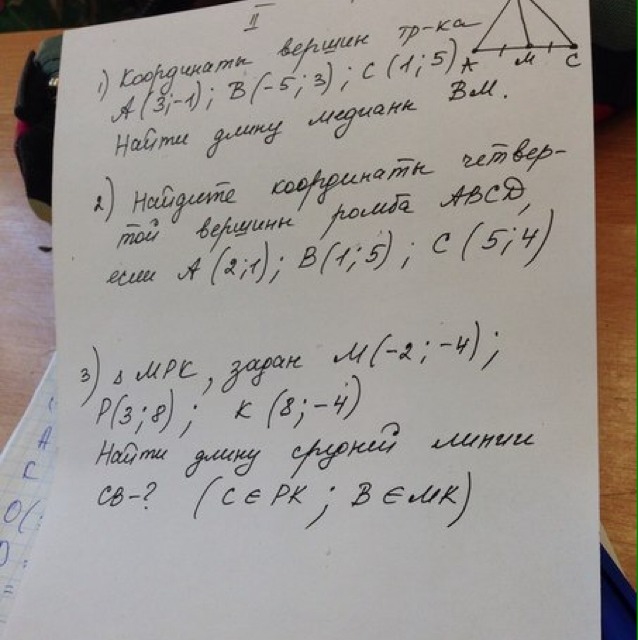 II
1) Координаты вершин тр-ка
A (3;-1); B (-5; 3); C (1; 5)
A M C
Найти длину медианы BM.
2) Найдите координаты четвер-
той вершины ромба ABCD,
если A (2;1); B (1; 5); C (5; 4)
3) Δ MPK, задан M (-2; -4);
P(3; 8); K (8; -4)
Найти длину средней линии
CB-? (C ∈ PK; B ∈ MK)
A
C
O(